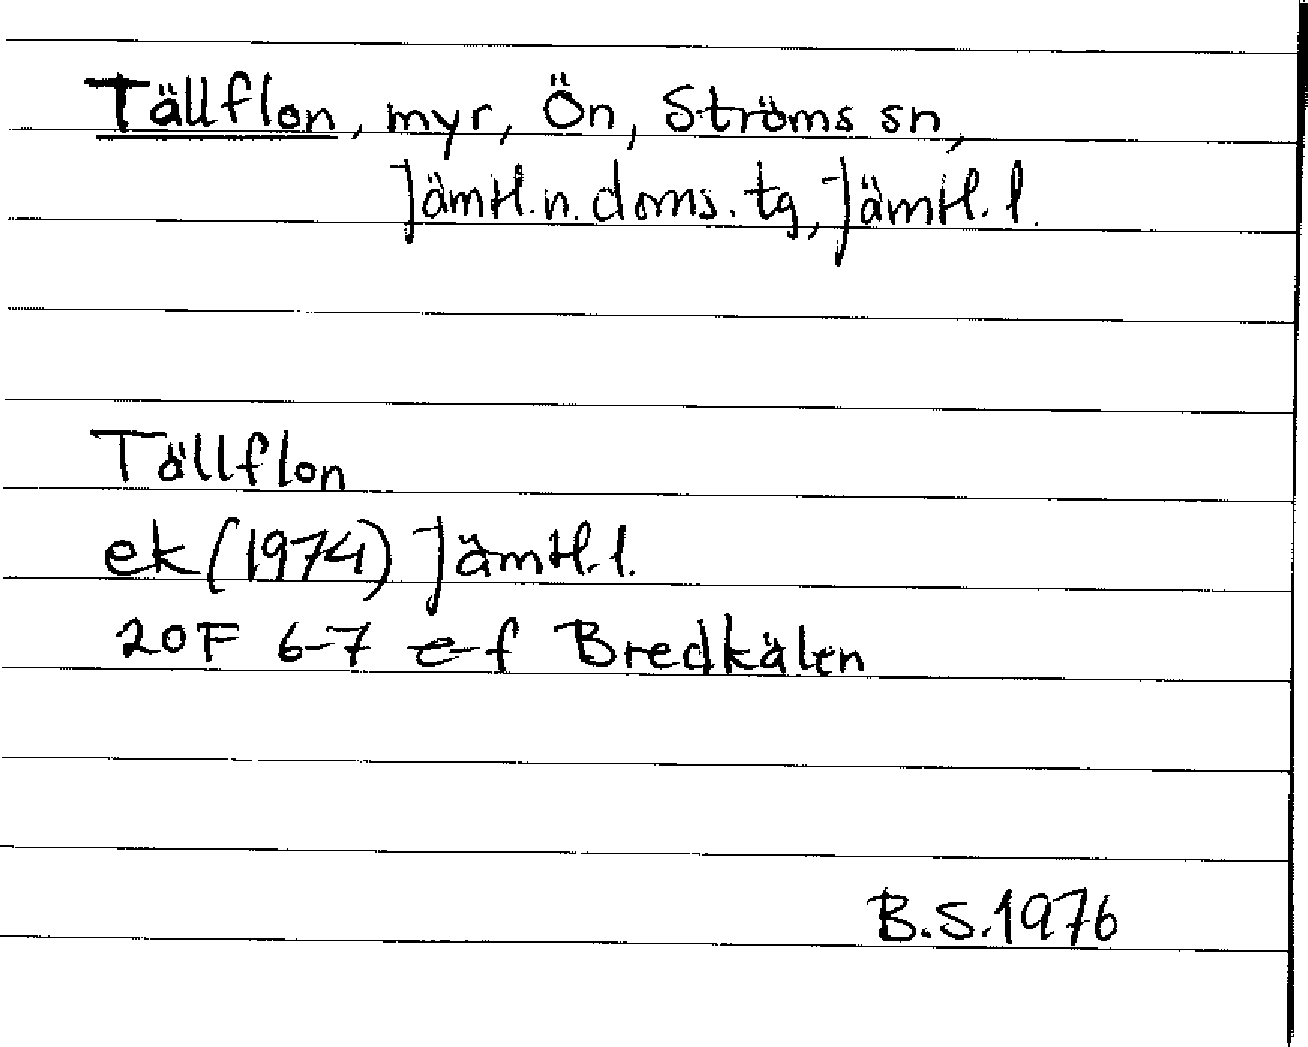 Tällflon, myr, Ön, Ströms sn,
Jämtl.n.doms.tg, Jämtl.l.
Tällflon
ek (1974) Jämtl.l.
20F 6-7 e-f Bredkälen
B.S.1976